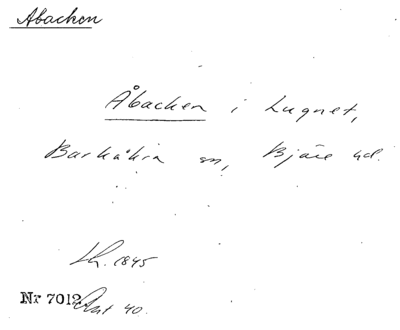 Åbacken
Åbacken i Lugnet,
Barkåkra sn, Bjäre hd.
Lh. 1845
Nr 7012 Ant 40.